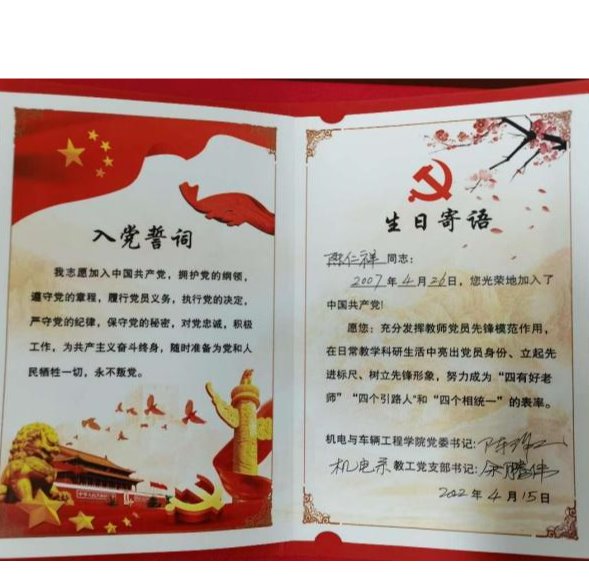 入党誓词
我志愿加入中国共产党，拥护党的纲领，
遵守党的章程，履行党员义务，执行党的决定，
严守党的纪律，保守党的秘密，对党忠诚，积极
工作，为共产主义奋斗终身，随时准备为党和人
民牺牲一切，永不叛党。
生日寄语
仁祥同志：
2007年4月26日，您光荣地加入了
中国共产党！
愿您：充分发挥教师党员先锋模范作用，
在日常教学科研生活中亮出党员身份、立起先
进标尺、树立先锋形象，努力成为“四有好老
师”“四个引路人”和“四个相统一”的表率。
机电与车辆工程学院党委书记：
机电系教工党支部书记：
年4月15日